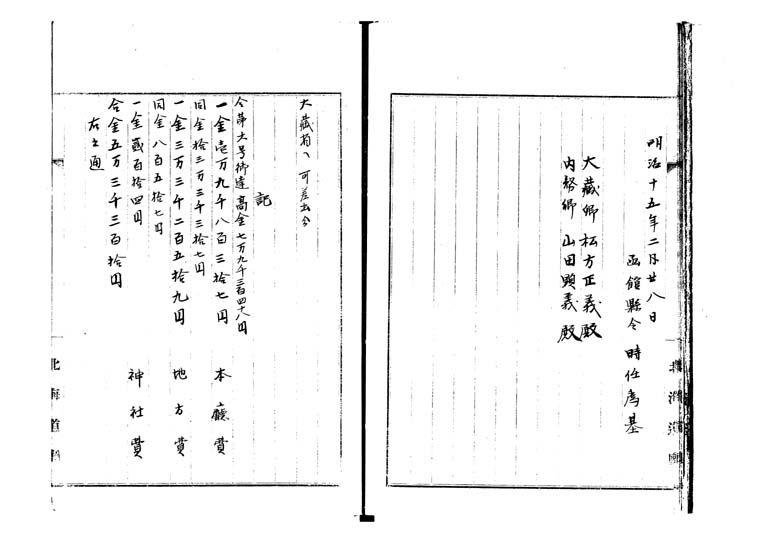 明治十五年二月廿八日
函館縣令 時任為基
大藏卿 松方正義殿
内務卿 山田顕義殿
大藏省ヘ可差出分
記
今第六号御達高金七万九千三百四十八円
一金壱万九千八百三拾七円 本廳費
同金拾三万三千三拾七円
一金三万三千二百五拾九円 地方費
同金八百五拾七円
一金貳百拾四円 神社費
合金五万三千三百拾円
右之通
北海道